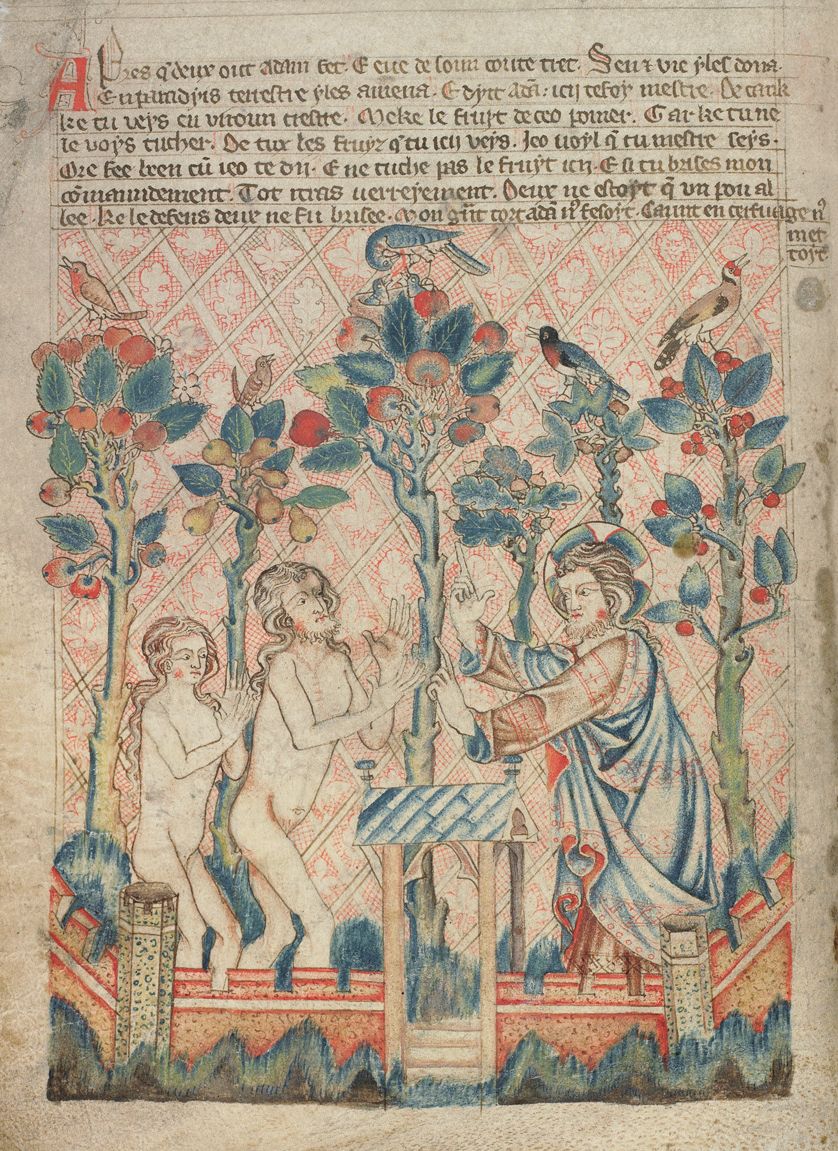 Apres q̃ deux out adam fet. E eue de soun coste tret. Sen & vie yles dona.
En paradyis terrestre yles amena. E dyit adã. icy te soy mestre. De cank
ke tu veys en viroun crestre. Meke le fruyt de ceo pomer. Gar ke tu ne
le voys tucher. De tux les fruyz q̃ tu icy veys. Jeo uoyl q̃ tu mestre seys.
Ore fee been cũ ieo te dy. E ne tuche pas le fruyt icy. E si tu brises mon
cõmaundement. Tot itras uerreyement. Deux ne estoyt q̃ un pou al
lee. ke le defens deux ne fu brisee. Mon gñt tort adã n9 fesoyt. Caunt en ceruage n9
met
toyt